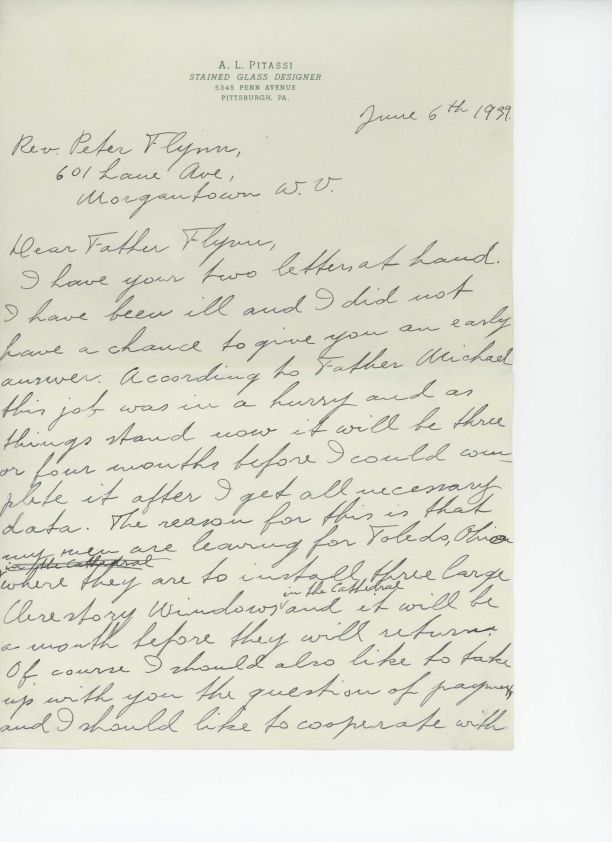 A. L. PITASSI
STAINED GLASS DESIGNER
5345 PENN AVENUE
PITTSBURGH, PA.
June 6th 1939.
Rev. Peter Flynn,
601 Lane Ave,
Morgantown W. V.
Dear Father Flynn,
I have your two letters at hand.
I have been ill and I did not
have a chance to give you an early
answer. According to Father Michael
this job was in a hurry and as
things stand now it will be three
or four months before I could com-
plete it after I get all necessary
data. The reason for this is that
my men are leaving for Toledo, Ohio
in the Cathedral
where they are to install three large
in the Cathedral
Clerestory Windows and it will be
a month before they will return.
Of course I should also like to take
up with you the question of payment,
and I should like to cooperate with